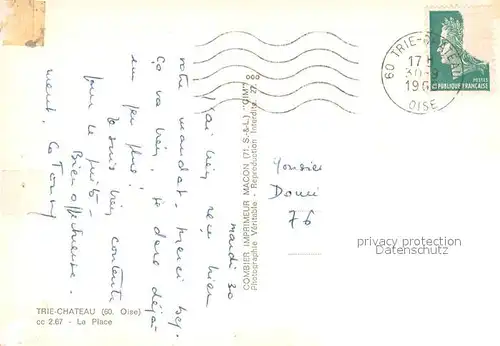 mardi 30
J'ai bien reçu hier
votre mandat. Merci bcp.
Ça va bien, je dore déjà
un peu plus!
Je suis bien contente
pour le petit-
Bien affectueuse-
ment,
Monsieur
76
COMBIER IMPRIMEUR MACON (71. S.-&-L.) "CIM"
Photographie Véritable - Reproduction Interdite
TRIE-CHATEAU (60. Oise)
cc 2.67 - La Place
60 TRIE-CHATEAU
17 H
30-9
OISE
POSTES
REPUBLIQUE FRANÇAISE
privacy protection
Datenschutz